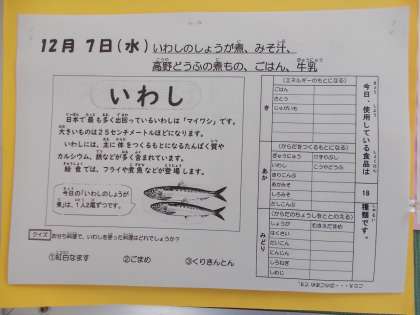 12月 7日(水) いわしのしょうが煮、みそ汁、
高野どうふの煮もの、ごはん、牛乳
いわし
日本で最も多く出回っているいわしは「マイワシ」です。
大きいものは25センチメートルほどになります。
いわしには、主に体をつくるもとになるたんぱく質や
カルシウム、鉄などが多く含まれています。
給食では、フライや煮魚などが登場します。
今日の「いわしのしょうが
煮」は、1人2尾ずつです。
クイズ
おせち料理で、いわしを使った料理はどれでしょうか?
①紅白なます ②ごまめ ③くりきんとん
今日、使用している食品は
18
種類です。
き
(エネルギーのもとになる)
ごはん
さとう
じゃがいも
あか
(からだをつくるもとになる)
ぎゅうにゅう
けずりぶし
いわし
こうやどうふ
あかみそ
しろみそ
だしこんぶ
みどり
(からだのちょうしをととのえる)
しょうが
はくさい
だいこん
にんじん
しろねぎ
しめじ